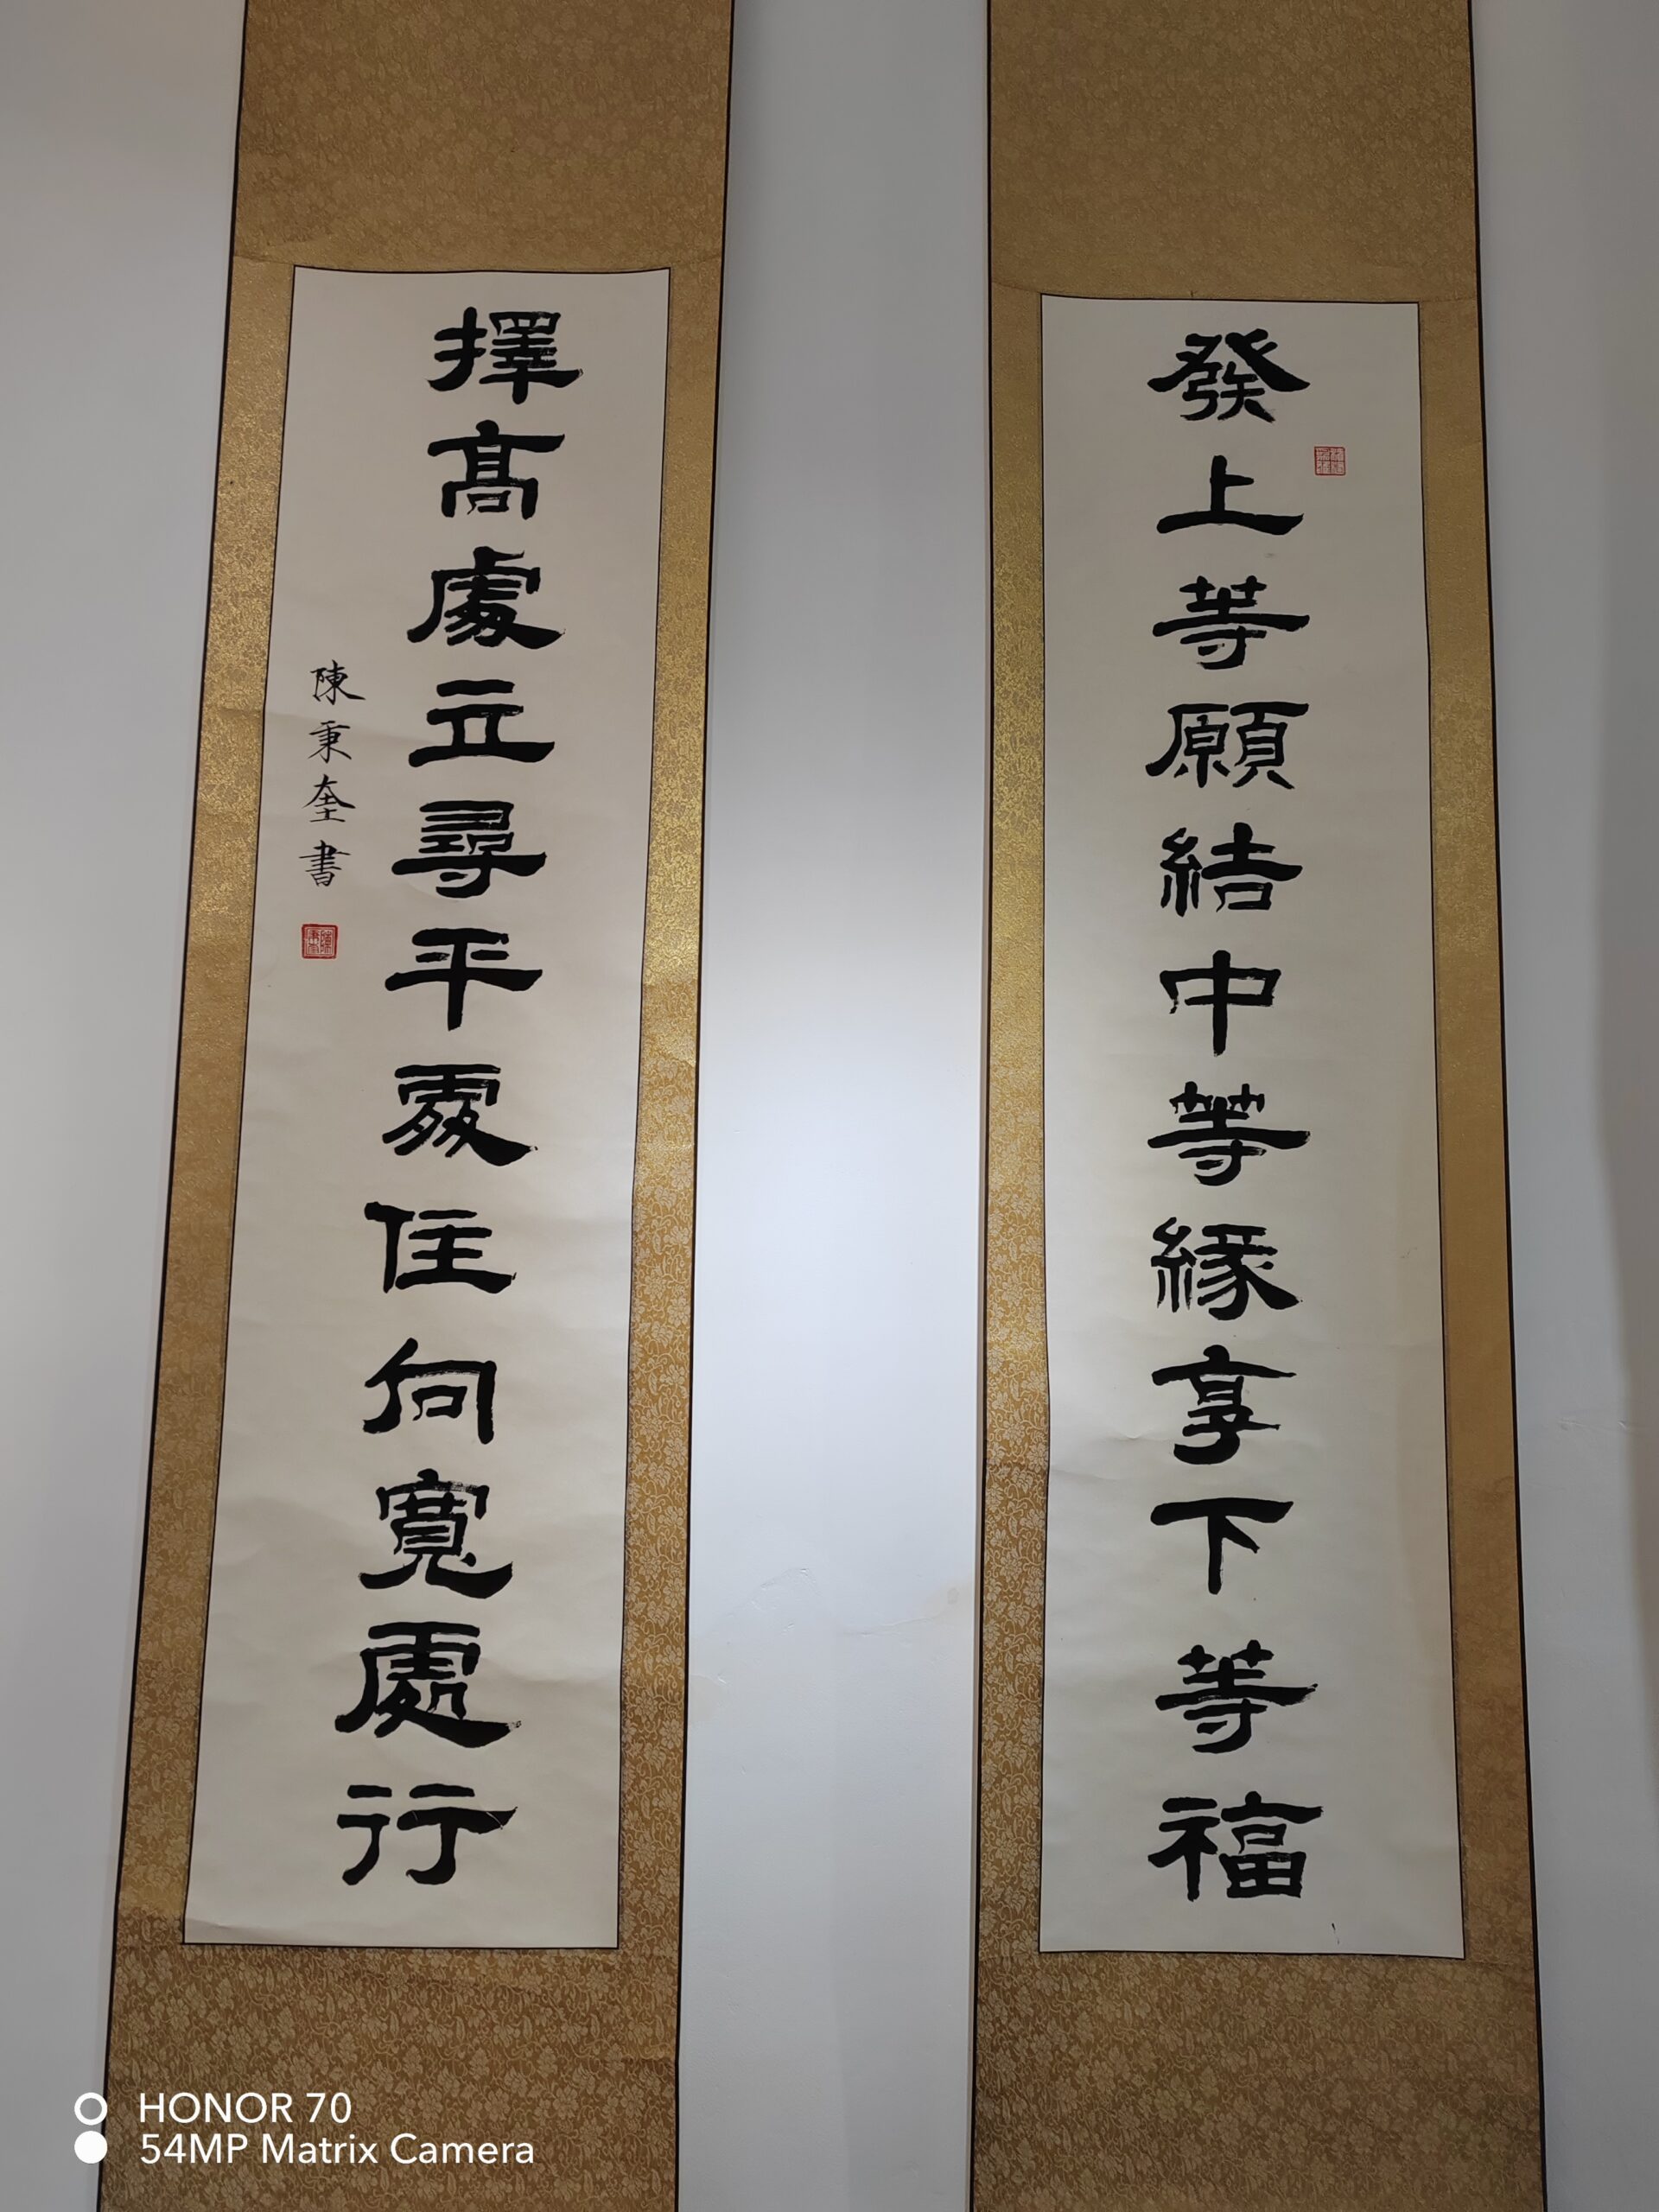 發上等願結中等緣享下等福
擇高處立尋平處住向寬處行
陳秉奎書
HONOR 70
54MP Matrix Camera